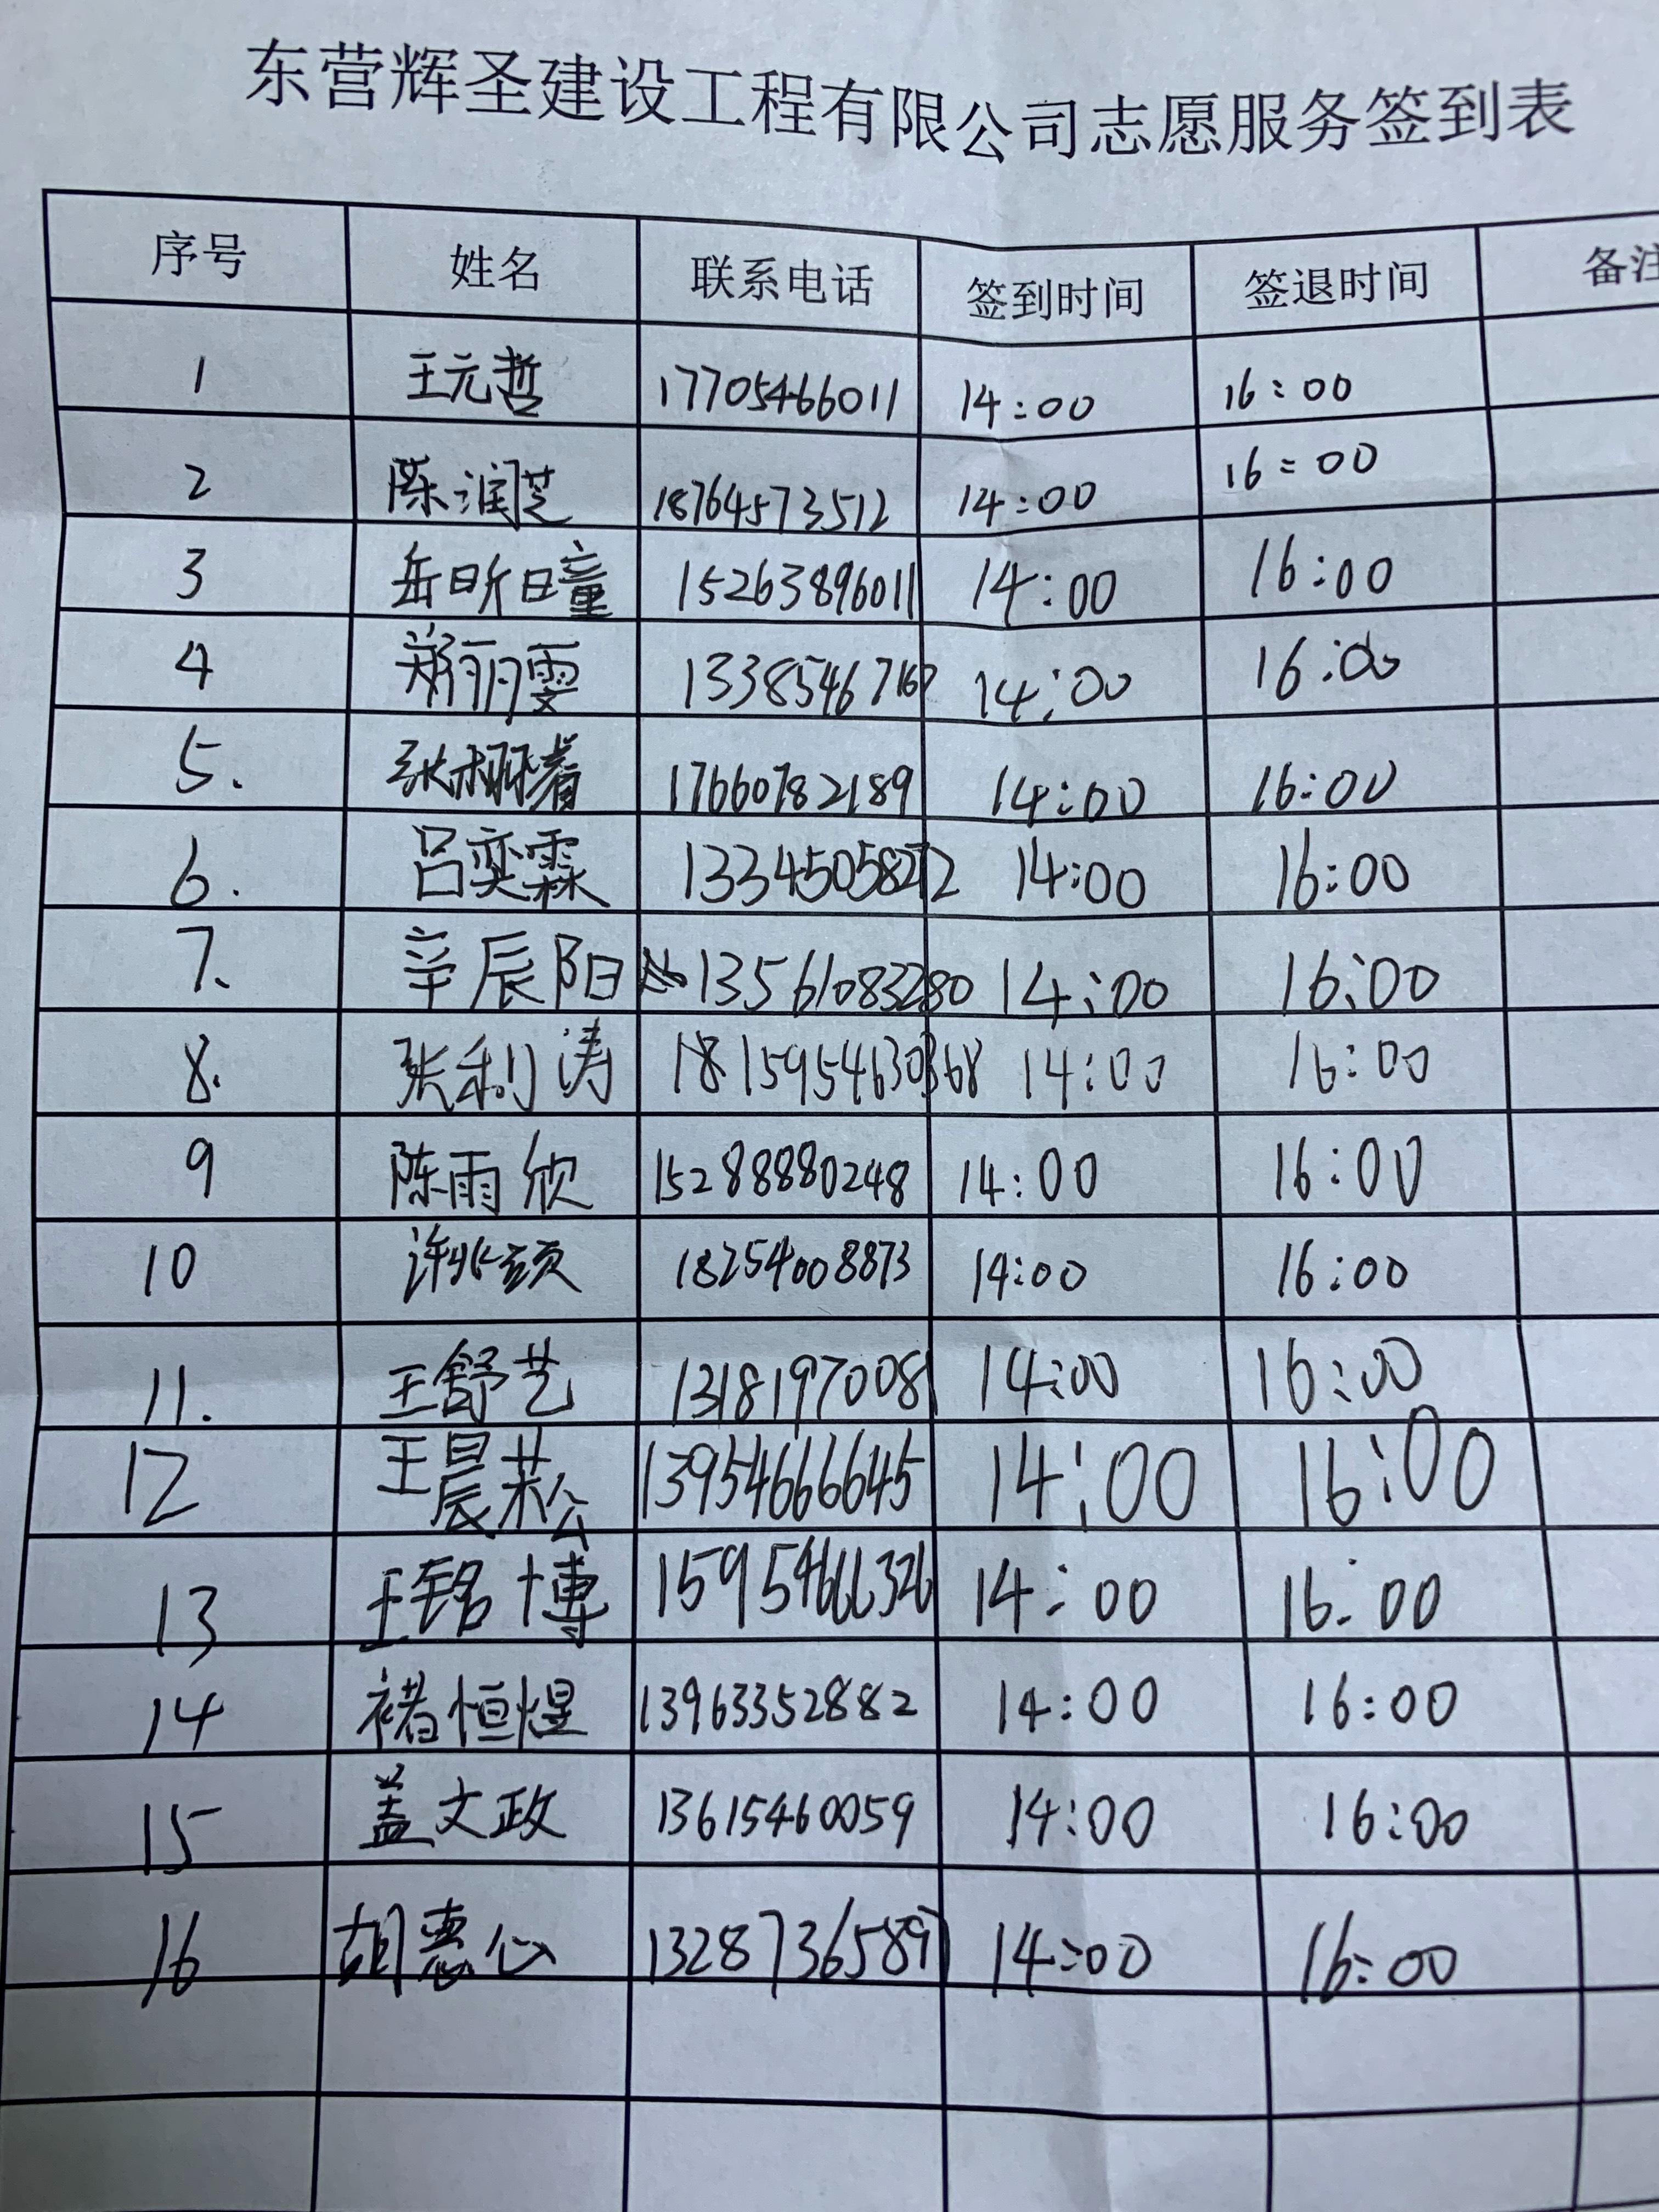 东营辉圣建设工程有限公司志愿服务签到表
序号 姓名 联系电话 签到时间 签退时间 备注
1 王元哲 17705466011 14:00 16:00
2 陈润芝 18764573512 14:00 16:00
3 岳昕曈 15263896011 14:00 16:00
4 郑丽雯 14:00 16:00
5. 17660782189 14:00 16:00
6. 吕奕霖 14:00 16:00
7. 辛辰阳 13561083280 14:00 16:00
8. 张利涛 14:00 16:00
9 陈雨欣 15288880248 14:00 16:00
10 许兆硕 18254008873 14:00 16:00
11. 王舒艺 13181970081 14:00 16:00
12 王晨菘 13954666645 14:00 16:00
13 王铭博 15954666326 14:00 16:00
14 褚恒煜 13963352882 14:00 16:00
15 盖文政 13615460059 14:00 16:00
16 胡惠心 13287365897 14:00 16:00